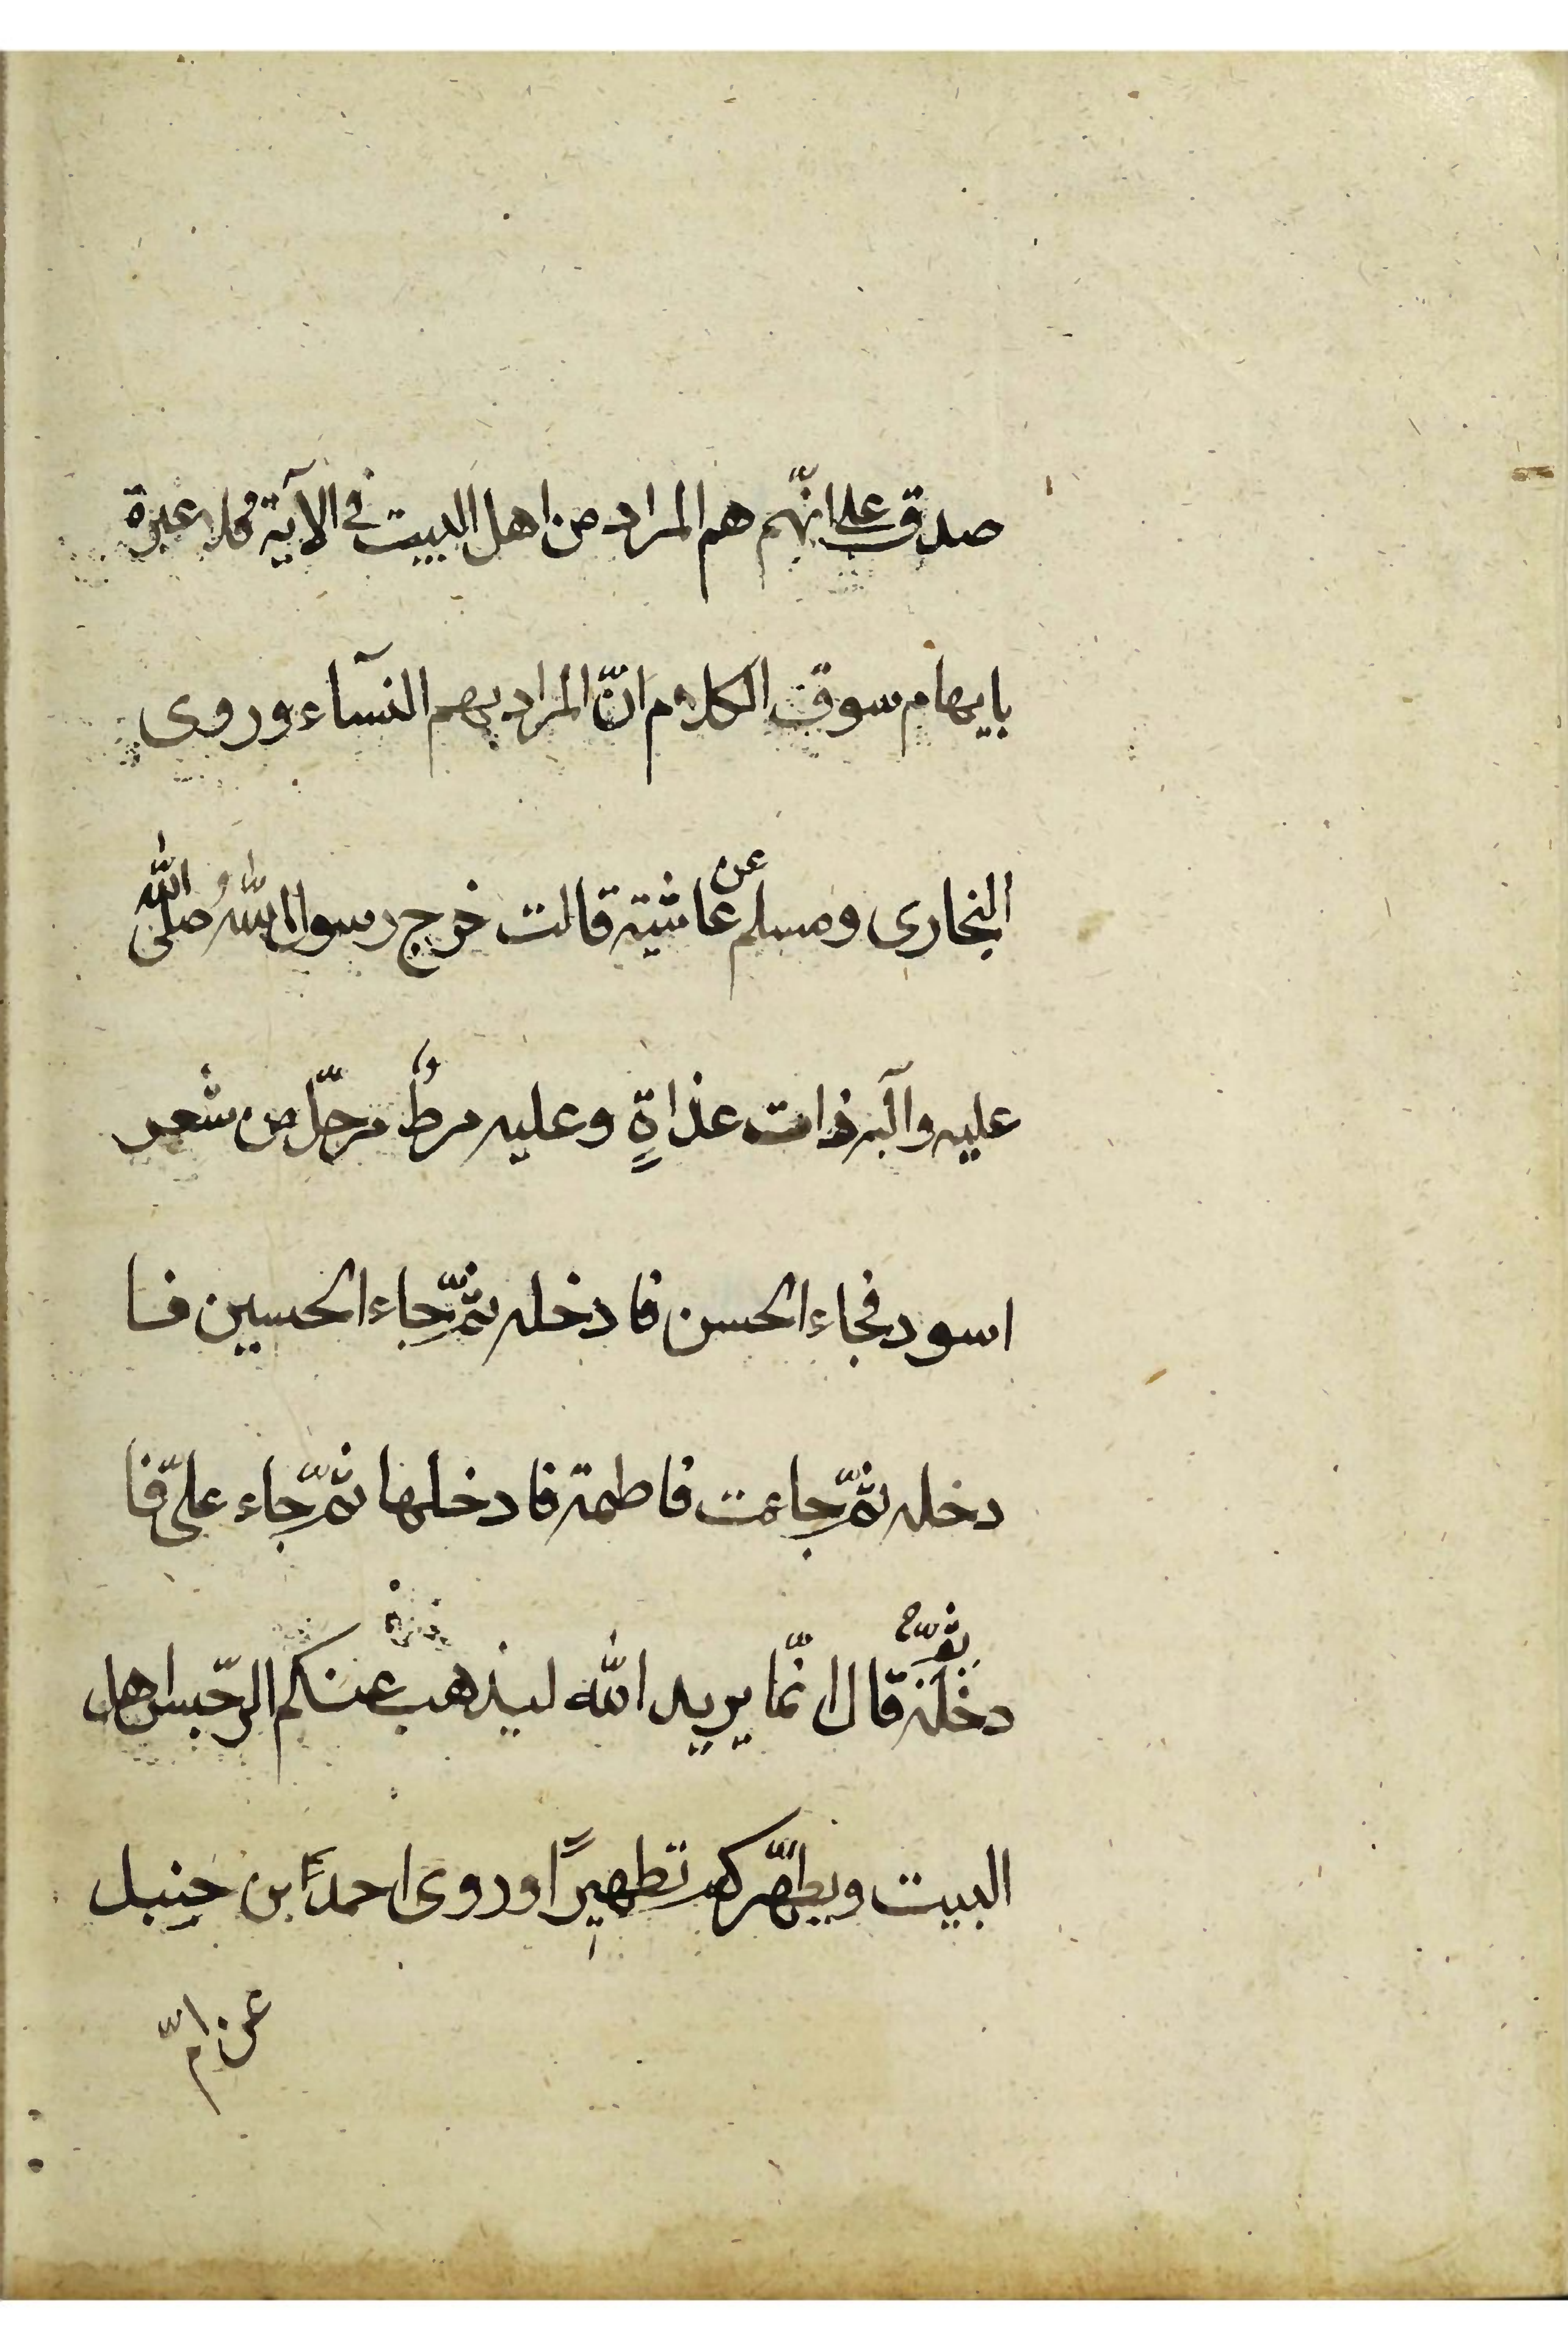 صدق على انّهم هم المراد من اهل البيت فى الآية فلا عبرة
بايهام سوق الكلام انّ المراد بهم النسآء وروى
البخارى ومسلم عن عاشية قالت خرج رسول الله صلى الله
عليه وآله ذات غداةٍ وعليه مرطٌ مرحّل من شعر
اسود فجاء الحسن فادخله ثمّ جاء الحسين فا
دخله ثمّ جاءت فاطمة فادخلها ثمّ جاء علىّ فا
دخله ثمّ قال انّما يريد الله ليذهب عنكم الرّجس اهل
البيت ويطهّركم تطهيرًا وروى احمد ابن حنبل
عن امّ